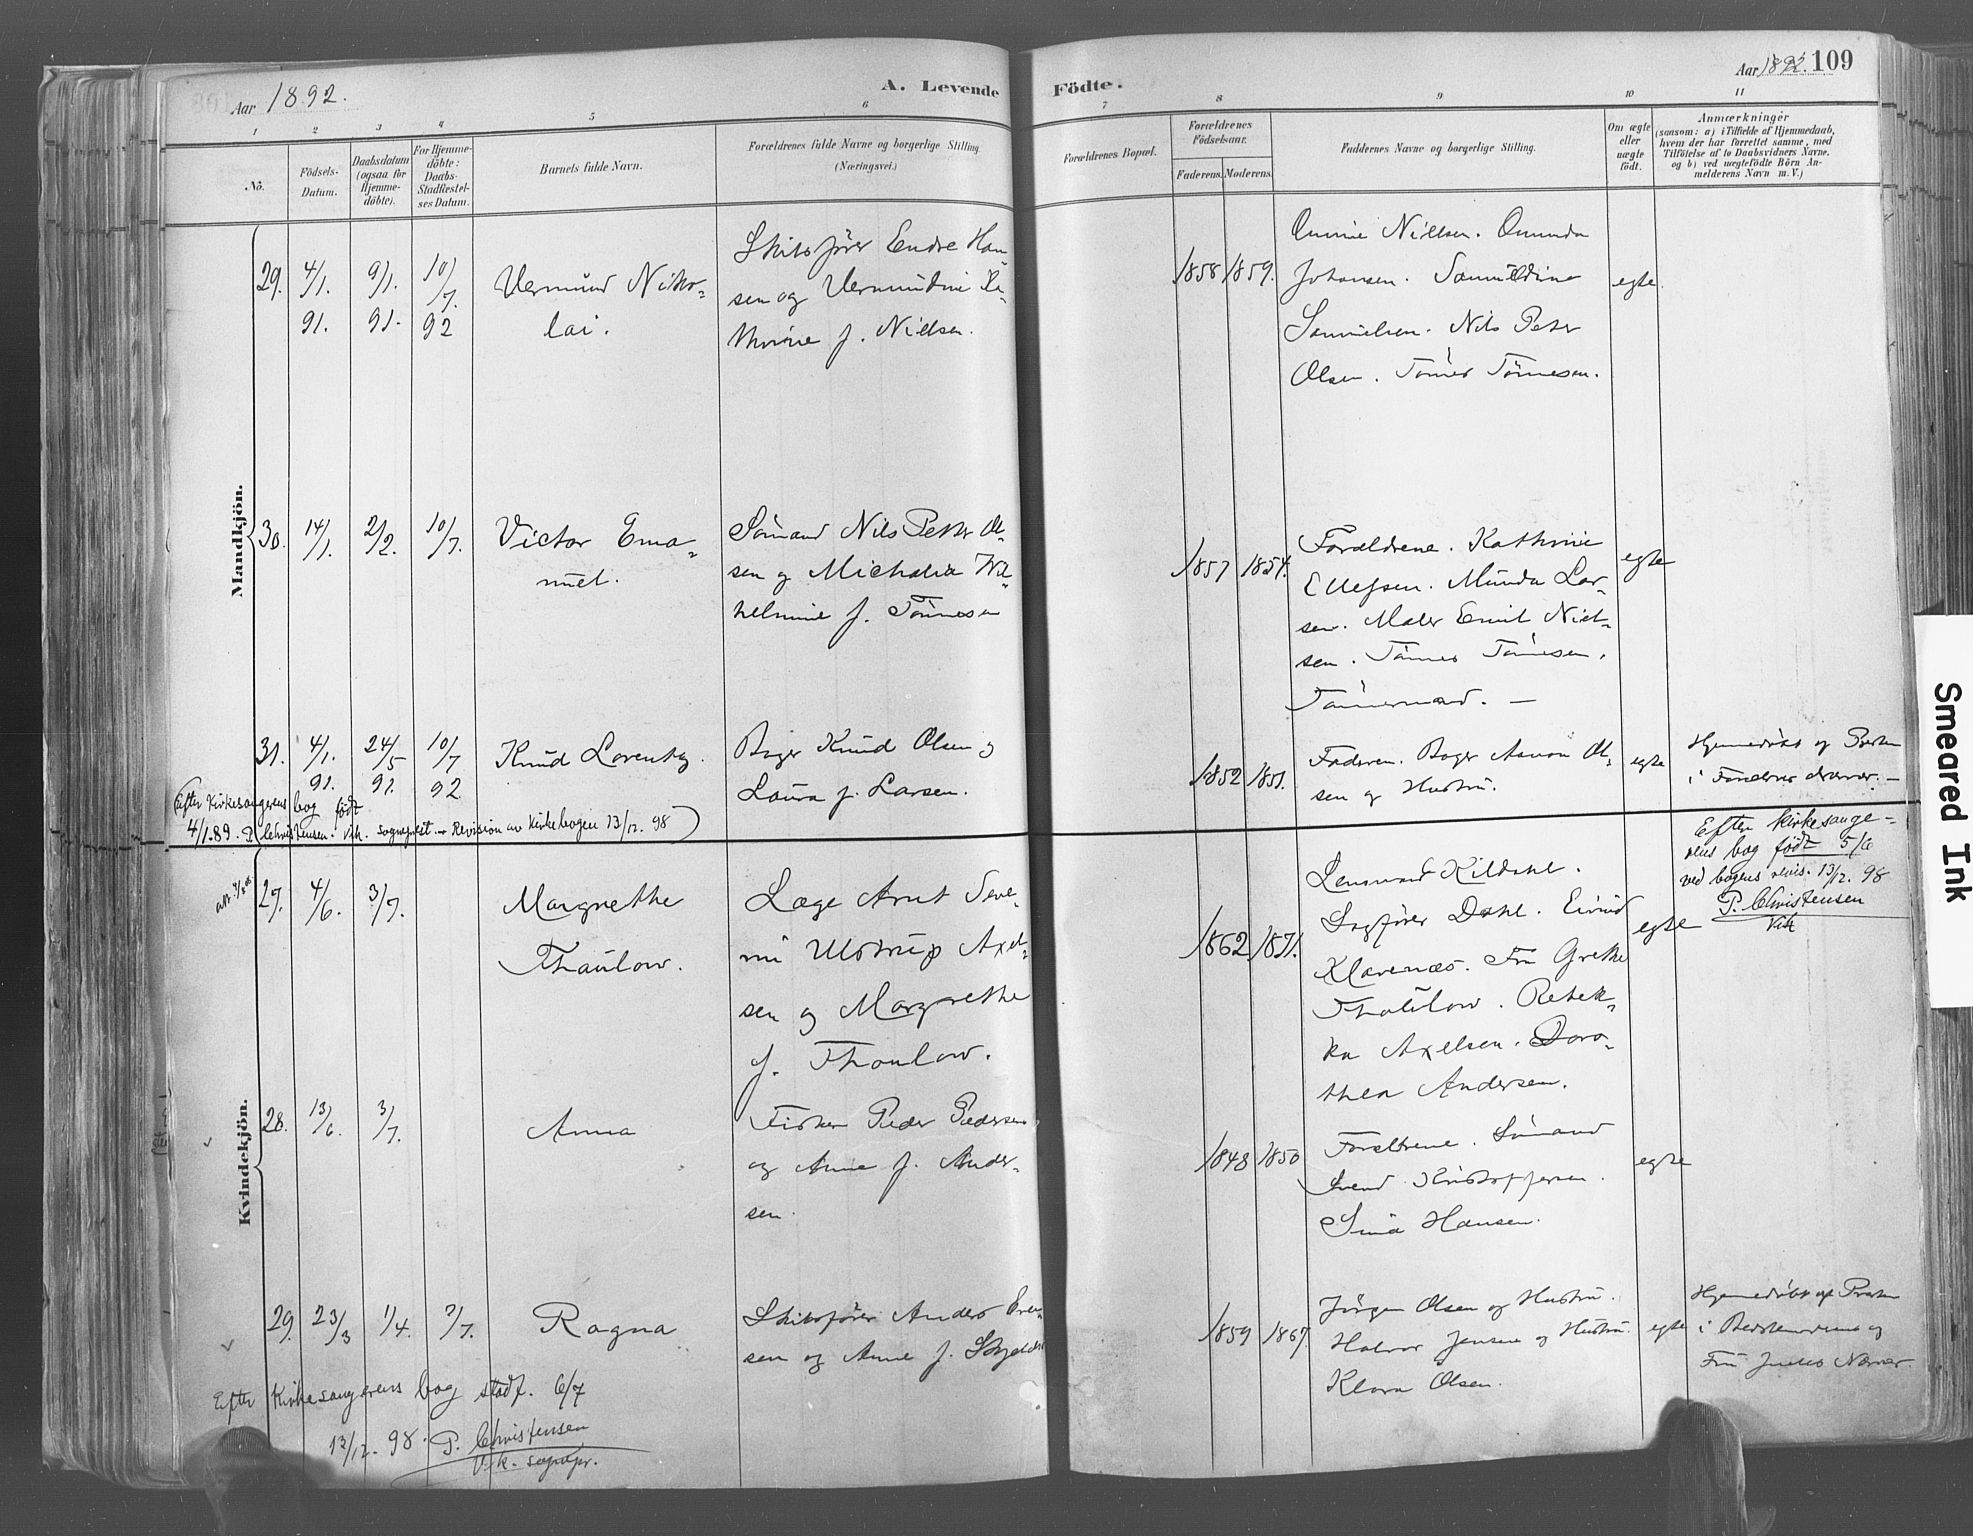 Aar 1892.
A. Levende Födte.
Aar 1892. 109
1 2 3 4 5 6 7 8 9 10 11
No.
Födsels-
Datum.
Daabsdatum
(ogsaa for
Hjemme-
döbte).
For Hjemme-
döbte:
Daabs-
Stadfæstel-
ses Datum.
Barnets fulde Navn.
Forældrenes fulde Navne og borgerlige Stilling
(Næringsvei.)
Forældrenes Bopæl.
Forældrenes
Födselsaar.
Faderens. Moderens.
Faddernes Navne og borgerlige Stilling.
Om ægte
eller
uægte
födt.
Anmærkninger
(saasom: a) i Tilfælde af Hjemmedaab,
hvem der har forrettet samme, med
Tilföielse af to Daabsvidners Navne,
og b) ved uægtefödte Börn An-
melderens Navn m. V.)
Mandkjön.
29. 4/1. 91. 9/1. 91. 10/7. 92
Vermund Niko-
lai.
Skibsfører Endre Han-
sen og Vermundine Ka-
thrine f. Nielsen.
1858 1859.
Nielsen. Omunda
Johansen.
Samuelsen. Nils Peter
Olsen. Tønnes Tønnesen.
egte.
30. 14/1. 2/2. 10/7.
Victor Ema-
nuel.
Sømand Nils Petter Ol-
sen og Michalia Wil-
helmine f. Tønnesen
1857 1854.
Forældrene. Kathrine
Ellefsen. Munda Lar-
sen. Maler Emil Niel-
sen. Tønnes Tønnesen.
Tømmermand. —
egte
31. 4/1. 91. 24/5 91. 10/7 92
Knud Lorentz.
Bager Knud Olsen og
Laura f. Larsen.
1852 1851.
Faderen. Bager Aanon Ol-
sen og Hustru.
egte
Hjemmedøbt af Præsten
i Forældrenes nærvær. —
(Efter Kirkesangerens bog født
4/1.89. P. Christensen. Vik. sogneprest. Revision av Kirkebogen 13/12. 98)
Kvindekjön.
27. 4/6. 3/7.
Margrethe
Thaulow.
Læge Arnt Seve-
rin Ulstrup Axel-
sen og Margrethe
f. Thaulow.
1862 1871.
Lensmand Kildahl.
Sagfører Dahl. Eivind
Klavenæs. Fru Grethe
Thaulow. Rebek-
ka Axelsen. Doro-
thea Andersen.
egte
Efter kirkesange-
rens bog født 5/6
ved bogens revis. 13/12. 98
P. Christensen
Vik
28. 13/6. 3/7.
Anna
Fisker Peder Pedersen
og Anne f. Ander-
sen.
1848 1850
Forældrene. Sømand
Svend Kristoffersen.
Sina Hansen.
egte
29. 23/3 1/4. 3/7.
Ragna
Skibsfører Anders Even-
sen og Anne f.
1859 1867.
Jørgen Olsen og Hustru.
Halvor Jensen og Hustru.
Klara Olsen.
egte
Hjemmedøbt af Præsten
i Bedstemoderens og
Fru Juells Nærvær.
Efter Kirkesangerens bog stadf. 6/7
13/12. 98. P. Christensen
Vik. sognepr.
Smeared Ink